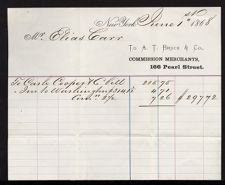 New York, June 1st 1868
Mr. Elias Carr
To A. T. Bruce & Co.
COMMISSION MERCHANTS,
166 Pearl Street.
To Cash Cooper & C. bill 285.75
Ins. to Washington 4.71
7.26 $297.72